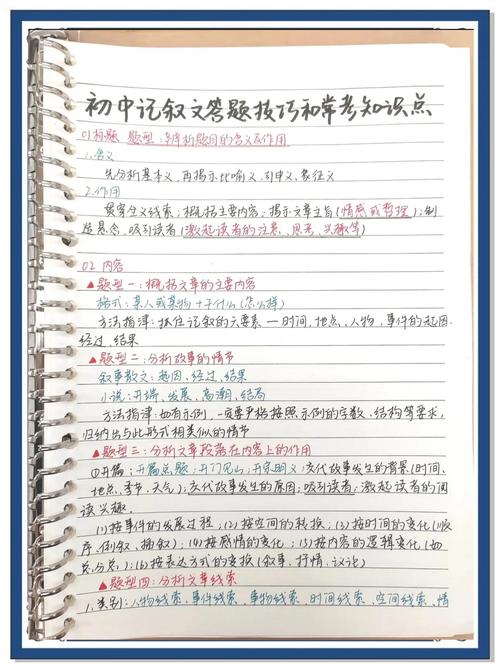 初中记叙文答题技巧和常考知识点
01标题 题型:解析题目的含义及作用
1.含义
先分析基本义,再揭示比喻义、引申义、象征义
2.作用
贯穿全文线索;概括主要内容;揭示文章主旨(情感或哲理);制
造悬念,吸引读者(激起读者的注意、思考、兴趣等)
02 内容
▲题型一:概括文章的主要内容
格式:某人或某物+干什么(怎么样)
方法指津:抓住记叙的六要素—时间、地点、人物、事件的起因、
经过、结果
▲题型二:分析故事的情节
叙事散文:起因、经过、结果
小说:开端、发展、高潮、结局
方法指津:如有示例,一定要严格按照示例的字数、结构等要求,
归纳出与此形式相类似的情节
▲题型三:分析文章段落在内容上的作用
①开篇:开篇点题;开门见山;开宗明义;交代故事发生的背景(时间、
地点、季节、天气);交代故事发生的原因;吸引读者;激起读者的阅
读兴趣。
(1)按事件的发展过程;(2)按空间的转换;(3)按时间的变化(顺
序、倒叙、插叙);(4)按感情的变化;(5)按内容的逻辑变化(如
总分总);(6)按表达方式的变换(叙事、抒情、议论)
▲题型四:分析文章线索
1.类别:人物线索、事件线索、事物线索、时间线索、空间线索、情